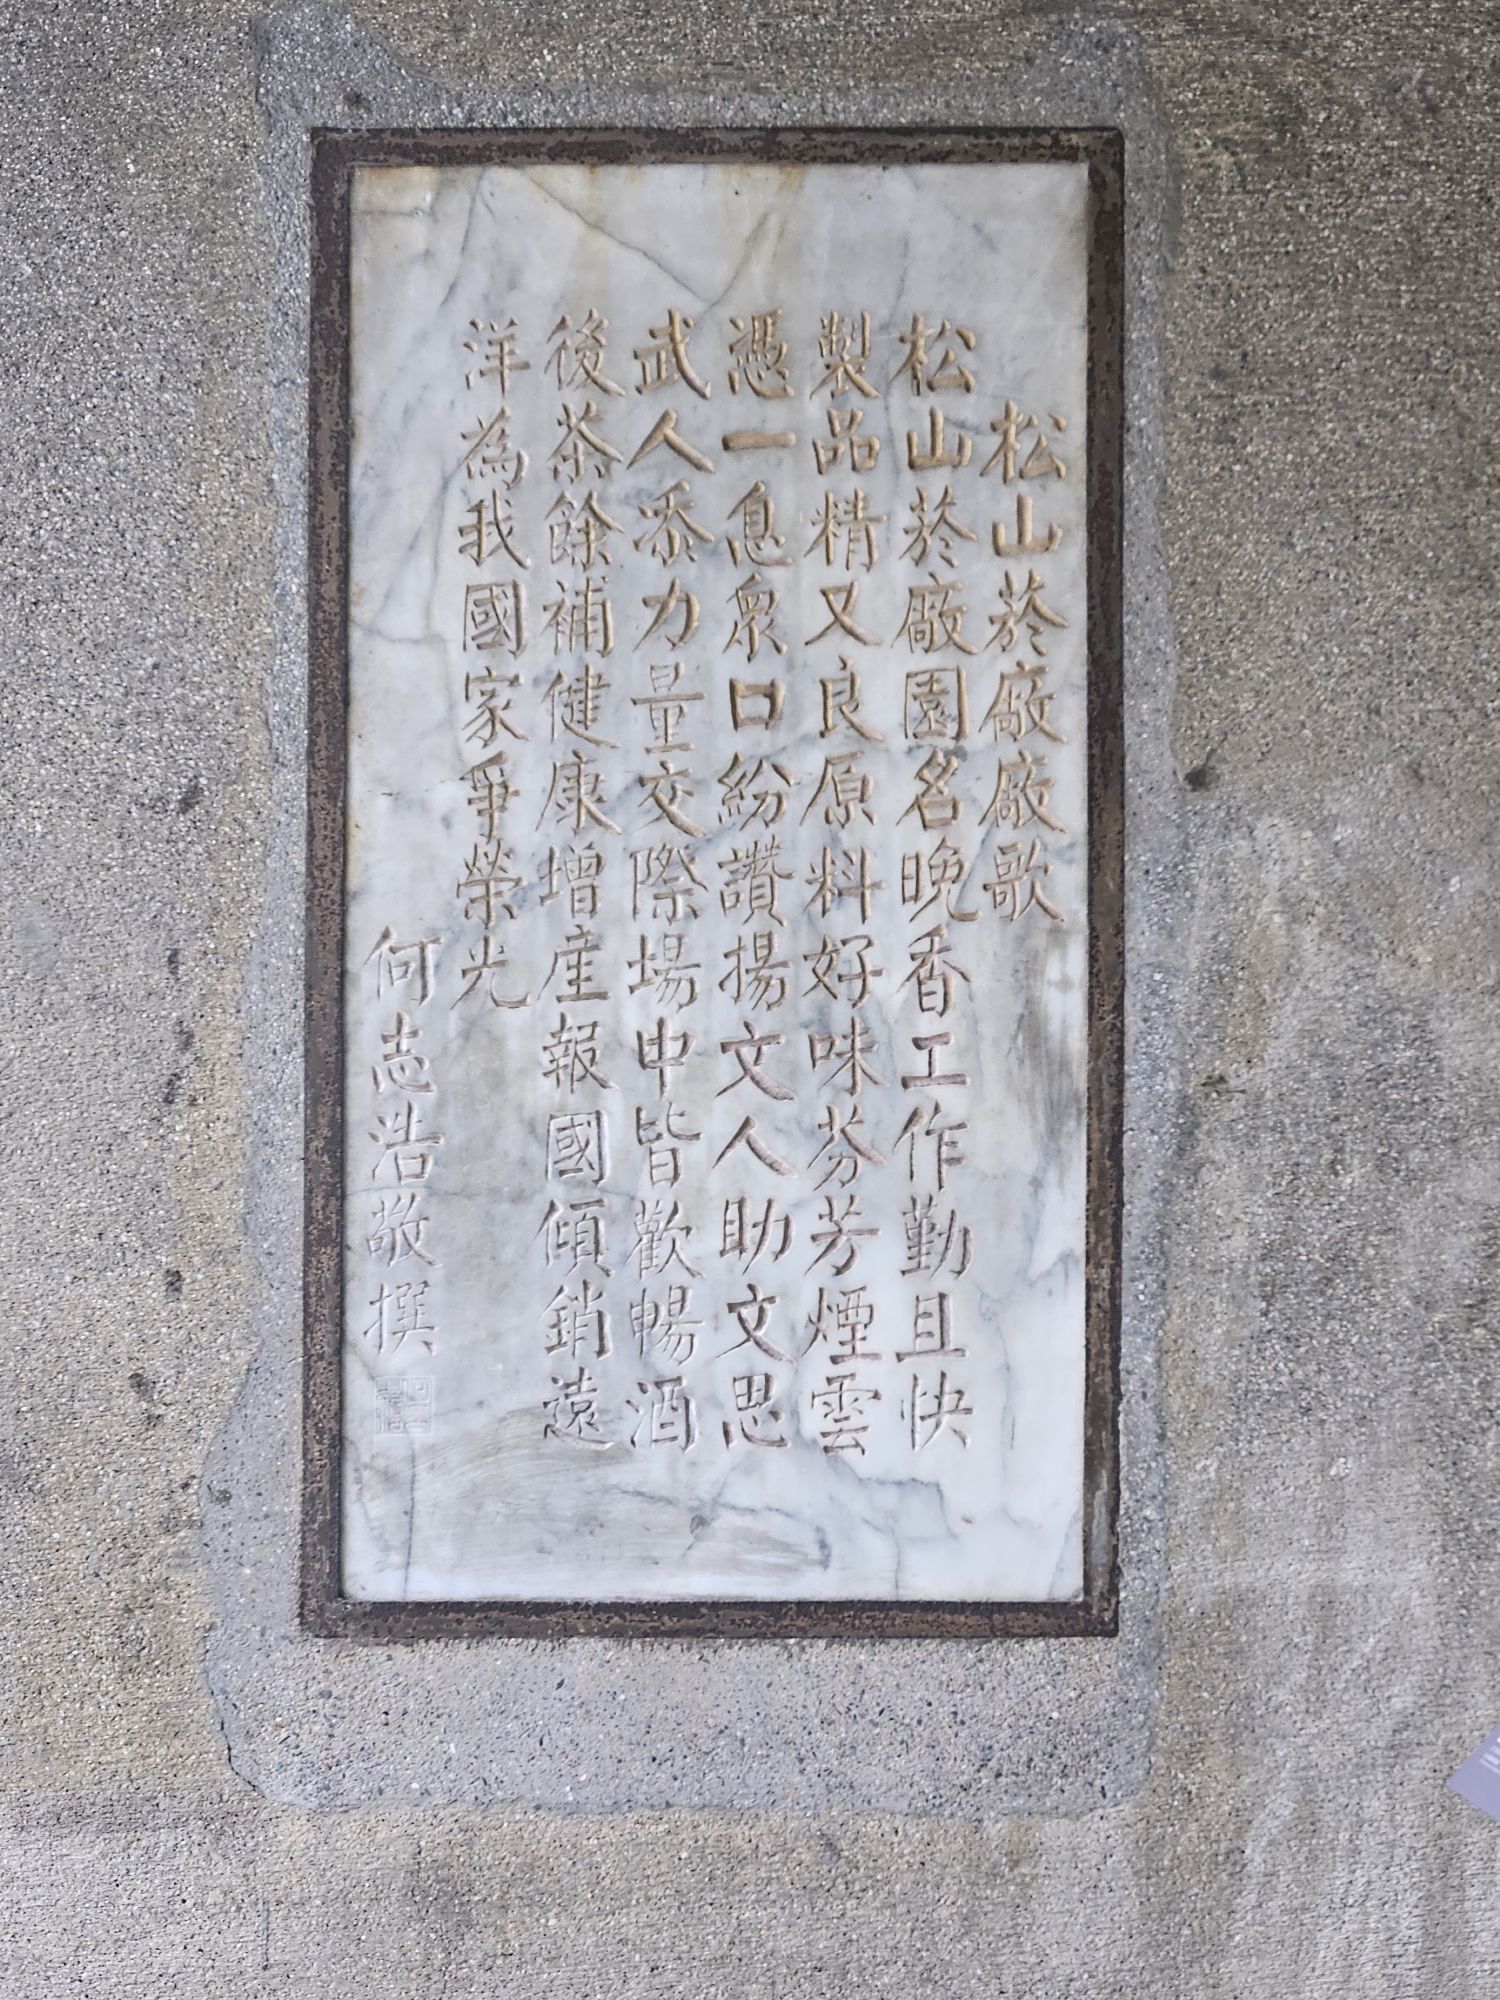 松山菸廠廠歌
松山菸廠園名晚香工作勤且快
製品精又良原料好味芬芳煙雲
憑一息眾口紛讚揚文人助文思
武人添力量交際場中皆歡暢酒
後茶餘補健康增產報國傾銷遠
洋為我國家爭榮光
何志浩敬撰